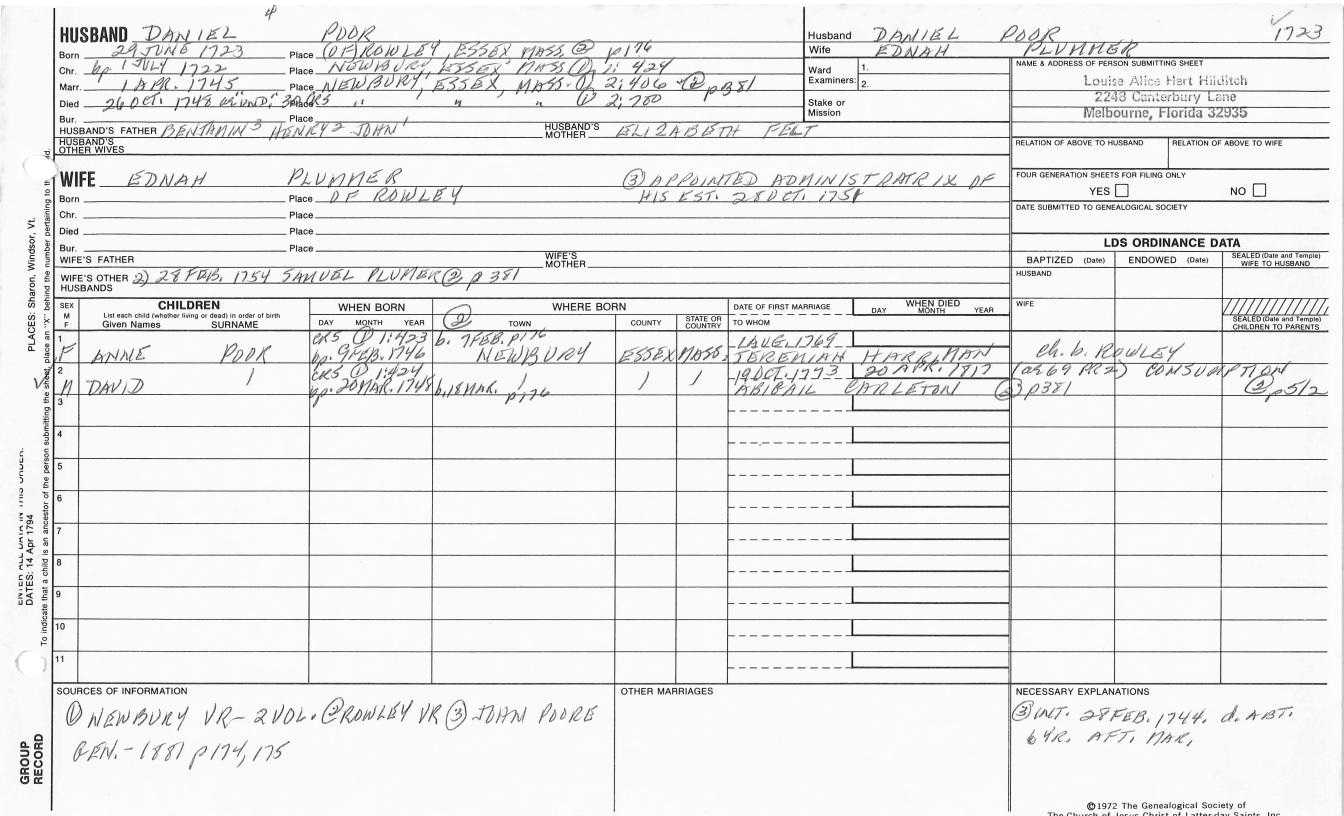 4
HUSBAND DANIEL POOR
Born 29 JUNE 1723 Place (OF) ROWLEY, ESSEX MASS ② p176
Chr. bp 1 JULY 1722 Place NEWBURY, ESSEX MASS ① 1: 424
Marr. 1 APR. 1745 Place NEWBURY, ESSEX, MASS. ① 2; 406 ② p381
Died 26 OCT. 1748 Place " " " ① 2; 700
Bur. Place
HUSBAND'S FATHER BENJAMIN 3 HENRY 2 JOHN 1 HUSBAND'S MOTHER ELIZABETH FELT
HUSBAND'S OTHER WIVES
WIFE EDNAH PLUMMER ③ APPOINTED ADMINISTRATRIX OF
Born Place OF ROWLEY HIS EST. 28 OCT. 1751
Chr. Place
Died Place
Bur. Place
WIFE'S FATHER WIFE'S MOTHER
WIFE'S OTHER HUSBANDS 2) 28 FEB. 1754 SAMUEL PLUMER ② p 381
Husband DANIEL POOR 1723
Wife EDNAH PLUMMER
Ward Examiners: 1.
2.
Stake or Mission
NAME & ADDRESS OF PERSON SUBMITTING SHEET
Louise Alice Hart Hilditch
2243 Canterbury Lane
Melbourne, Florida 32935
RELATION OF ABOVE TO HUSBAND RELATION OF ABOVE TO WIFE
FOUR GENERATION SHEETS FOR FILING ONLY
YES NO
DATE SUBMITTED TO GENEALOGICAL SOCIETY
LDS ORDINANCE DATA
BAPTIZED (Date) ENDOWED (Date) SEALED (Date and Temple) WIFE TO HUSBAND
HUSBAND
WIFE
SEALED (Date and Temple) CHILDREN TO PARENTS
SEX M F
CHILDREN
List each child (whether living or dead) in order of birth
Given Names SURNAME
WHEN BORN
DAY MONTH YEAR
② WHERE BORN
TOWN COUNTY STATE OR COUNTRY
DATE OF FIRST MARRIAGE
TO WHOM
WHEN DIED
DAY MONTH YEAR
1 CRS ① 1:423 b. 7 FEB. p176 1 AUG. 1769
F ANNE POOR bp. 9 FEB. 1746 NEWBURY ESSEX MASS. JEREMIAH HARRIMAN ch. b. ROWLEY
2 CRS ① 1:424 19 OCT. 1773 20 APR. 1817 (a 69 PR2) COMSUMPTION
M DAVID bp. 20 MAR. 1748 b. 18 MAR. p176 ABIGAIL CARLETON ② p381 ② p512
3
4
5
6
7
8
9
10
11
SOURCES OF INFORMATION
① NEWBURY VR - 2 VOL. ② ROWLEY VR ③ JOHN POORE
GEN. - 1881 p174, 175
OTHER MARRIAGES
NECESSARY EXPLANATIONS
③ INT. 28 FEB. 1744. d. ABT.
6 YR. AFT. MAR.
©1972 The Genealogical Society of
The Church of Jesus Christ of Latter-day Saints, Inc.
PLACES: Sharon, Windsor, Vt.
ENTER ALL DATA IN THIS ORDER:
DATES: 14 Apr 1794
To indicate that a child is an ancestor of the person submitting the sheet, place an "X" behind the number pertaining to th
GROUP
RECORD